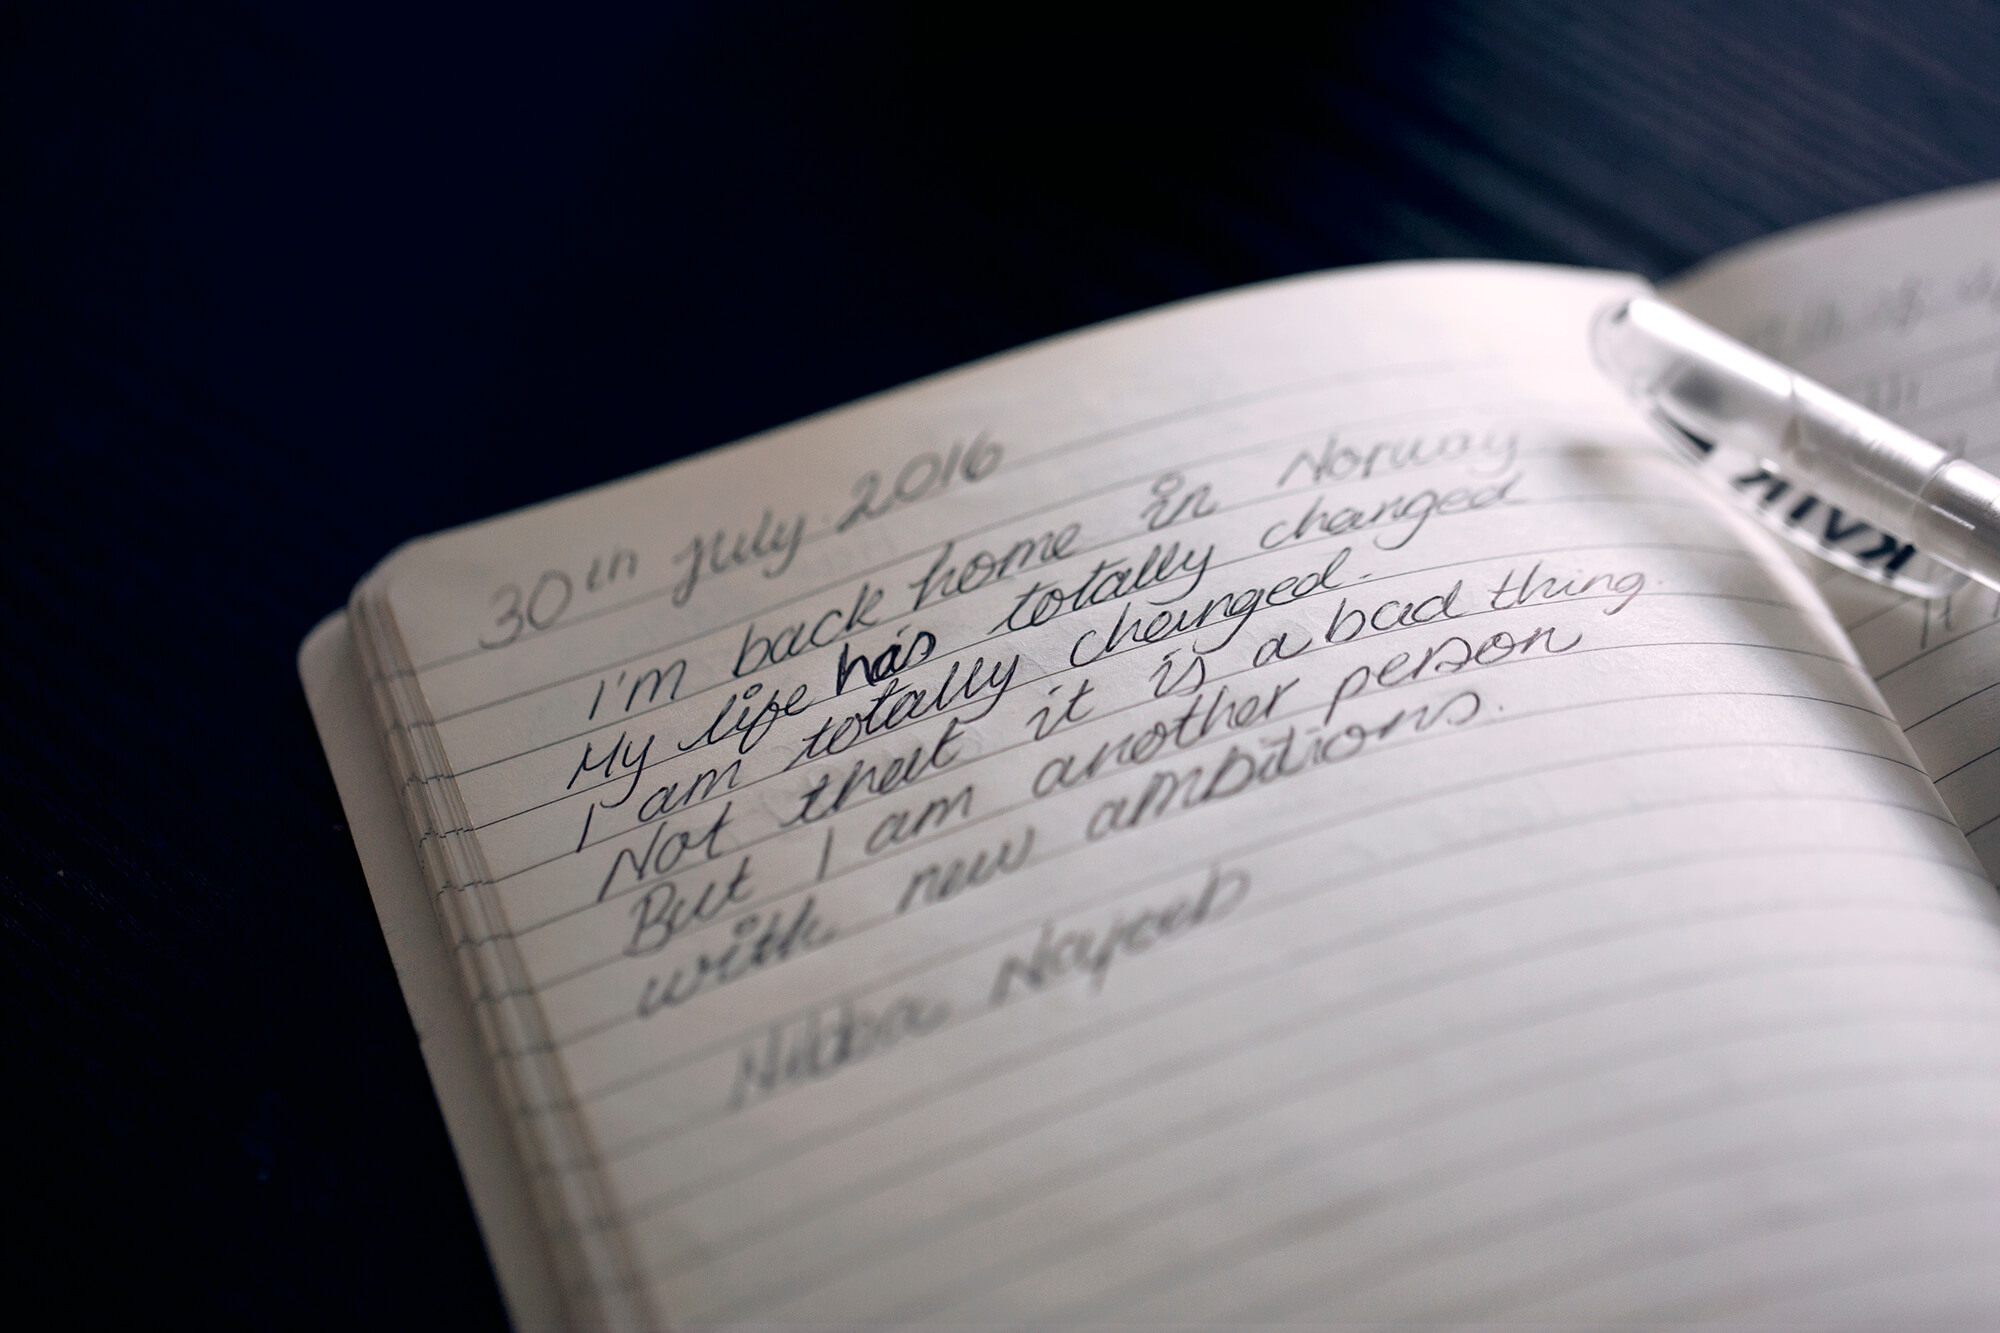 30th July 2016
I'm back home in Norway
My life has totally changed
I am totally changed.
Not that it is a bad thing.
But I am another person
with new ambitions.
Hibba Najeeb